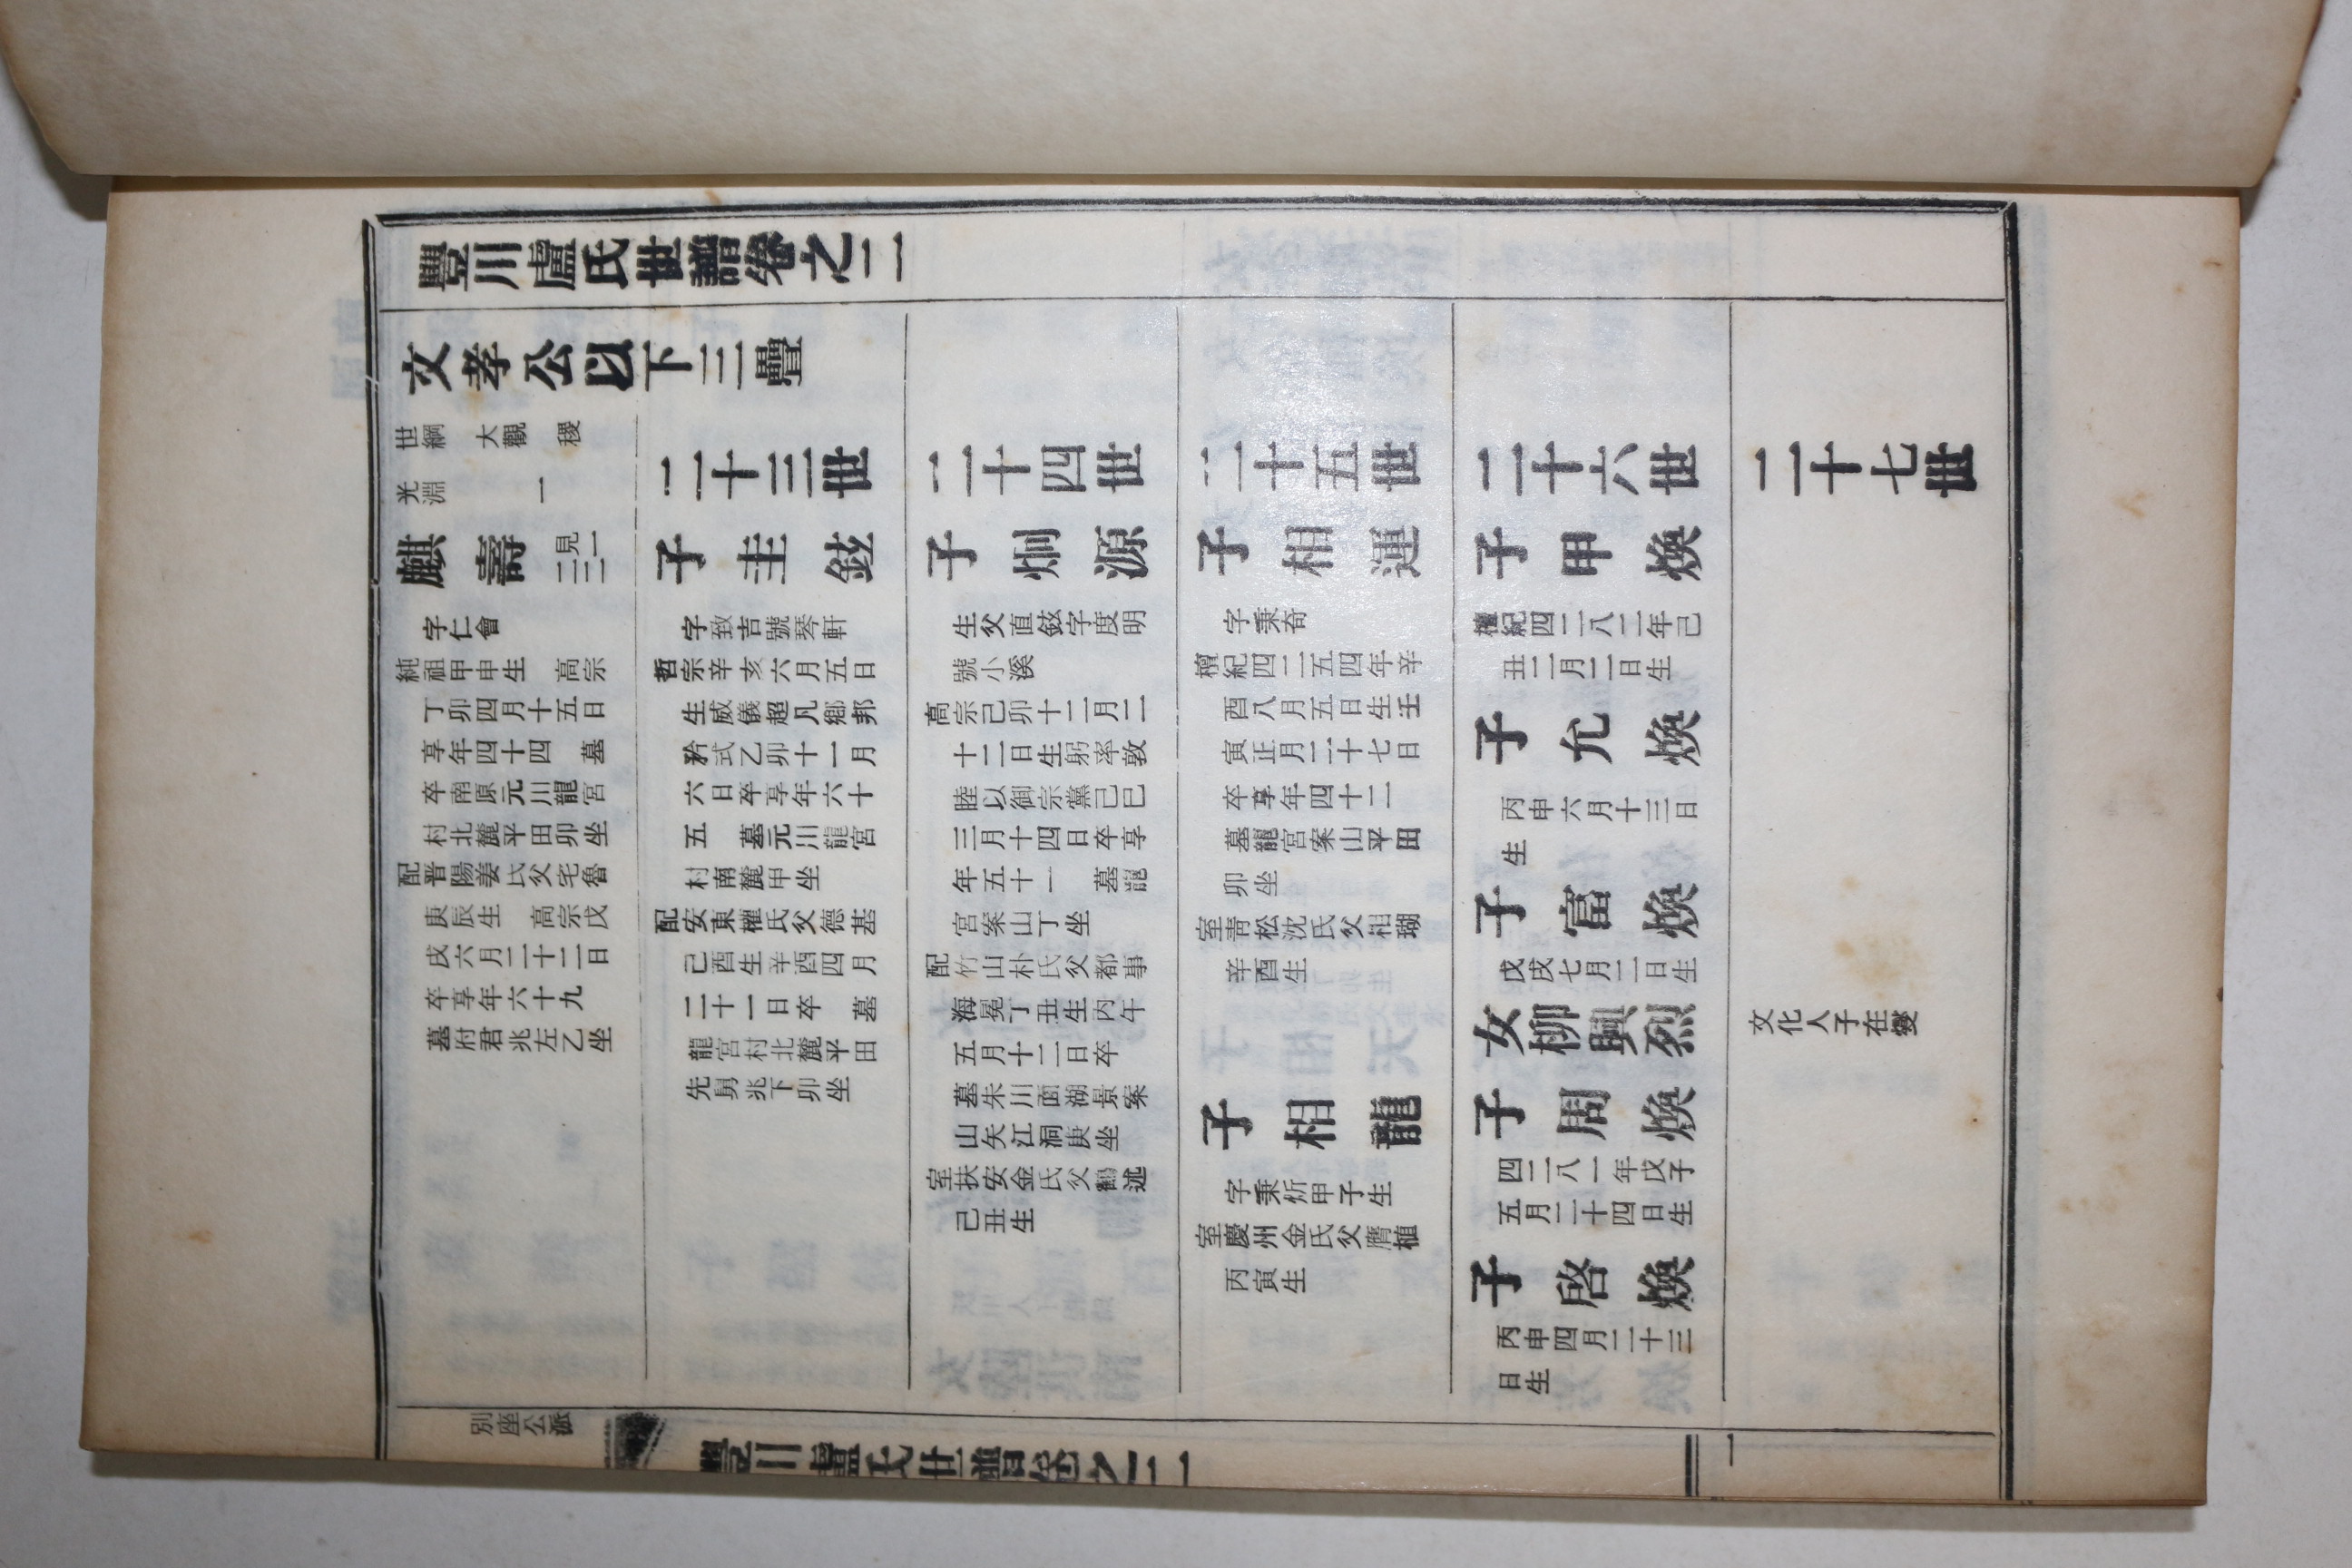 豐川盧氏世譜卷之二
文孝公以下三疊
世綱 大觀 稷
光淵 一
麒壽 二見三一
字仁會
純祖甲申生 高宗
丁卯四月十五日
享年四十四 墓
卒南原元川龍宮
村北麓平田卯坐
配晋陽姜氏父宅魯
庚辰生 高宗戊
戌六月二十二日
卒享年六十九
墓祔君兆左乙坐
二十三世
子圭鉉
字致吉號琴軒
哲宗辛亥六月五日
生威儀超凡鄉邦
矜式乙卯十一月
六日卒享年六十
五 墓元川龍宮
村南麓甲坐
配安東權氏父德基
己酉生辛酉四月
二十一日卒 墓
龍宮村北麓平田
先舅兆下卯坐
二十四世
子炯源
生父直鉉字度明
號小溪
高宗己卯十二月二
十二日生躬率敦
睦以御宗黨己巳
三月十四日卒享
年五十一 墓龍
宮案山丁坐
配竹山朴氏父都事
海冕丁丑生丙午
五月十二日卒
墓朱川面湖景案
山矢江洞庚坐
室扶安金氏父鶴述
己丑生
二十五世
子相運
字秉奇
檀紀四二五四年辛
酉八月五日生壬
寅正月二十七日
卒享年四十二
墓龍宮案山平田
卯坐
室靑松沈氏父相瑚
辛酉生
子相龍
字秉炘甲子生
室慶州金氏父膺植
丙寅生
二十六世
子甲煥
檀紀四二八二年己
丑二月二日生
子允煥
丙申六月十三日
生
子富煥
戊戌七月二日生
女柳興烈
子周煥
四二八一年戊子
五月二十四日生
子啓煥
丙申四月二十三
日生
二十七世
文化人子在燮
別座公派
豐川盧氏世譜卷之二
一